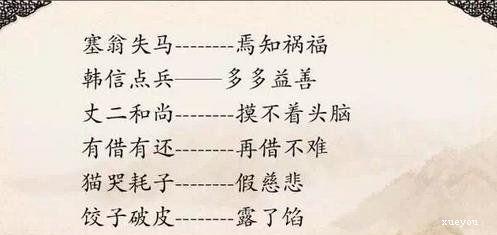 塞翁失马--------焉知祸福
韩信点兵——多多益善
丈二和尚--------摸不着头脑
有借有还--------再借不难
猫哭耗子--------假慈悲
饺子破皮--------露了馅
xueyou